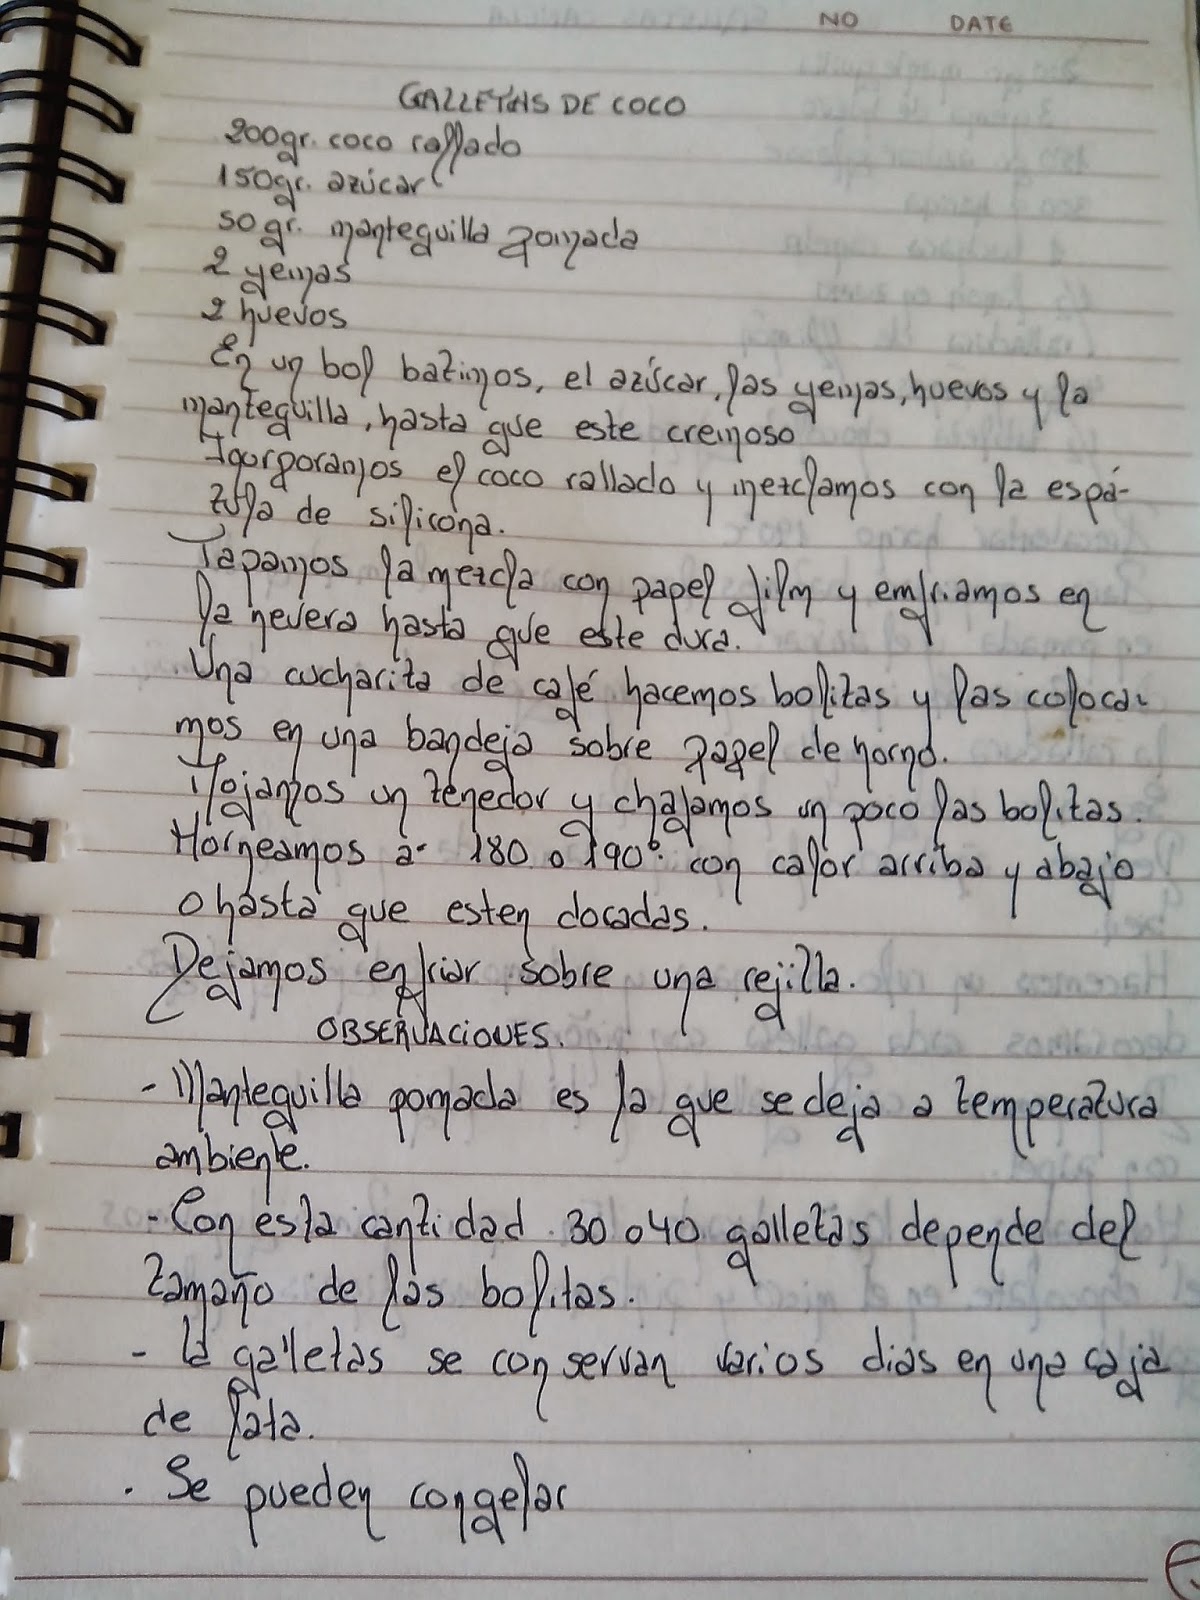 NO DATE
GALLETAS DE COCO
200gr. coco rallado
150gr. azúcar
50 gr. mantequilla pomada
2 yemas
2 huevos
En un bol batimos, el azúcar, las yemas, huevos y la
mantequilla, hasta que este cremoso
Incorporamos el coco rallado y mezclamos con la espá-
tula de silicona.
Tapamos la mezcla con papel film y emfriamos en
la nevera hasta que este dura.
Una cucharita de café hacemos bolitas y las coloca-
mos en una bandeja sobre papel de horno.
Mojamos un tenedor y chafamos un poco las bolitas.
Horneamos a 180 o 190º. con calor arriba y abajo
o hasta que esten doradas.
Dejamos enfriar sobre una rejilla.
OBSERVACIONES.
- Mantequilla pomada es la que se deja a temperatura
ambiente.
- Con esta cantidad 30 o 40 galletas depende del
tamaño de las bolitas.
- La galletas se conservan varios dias en una caja
de lata.
. Se pueden congelar